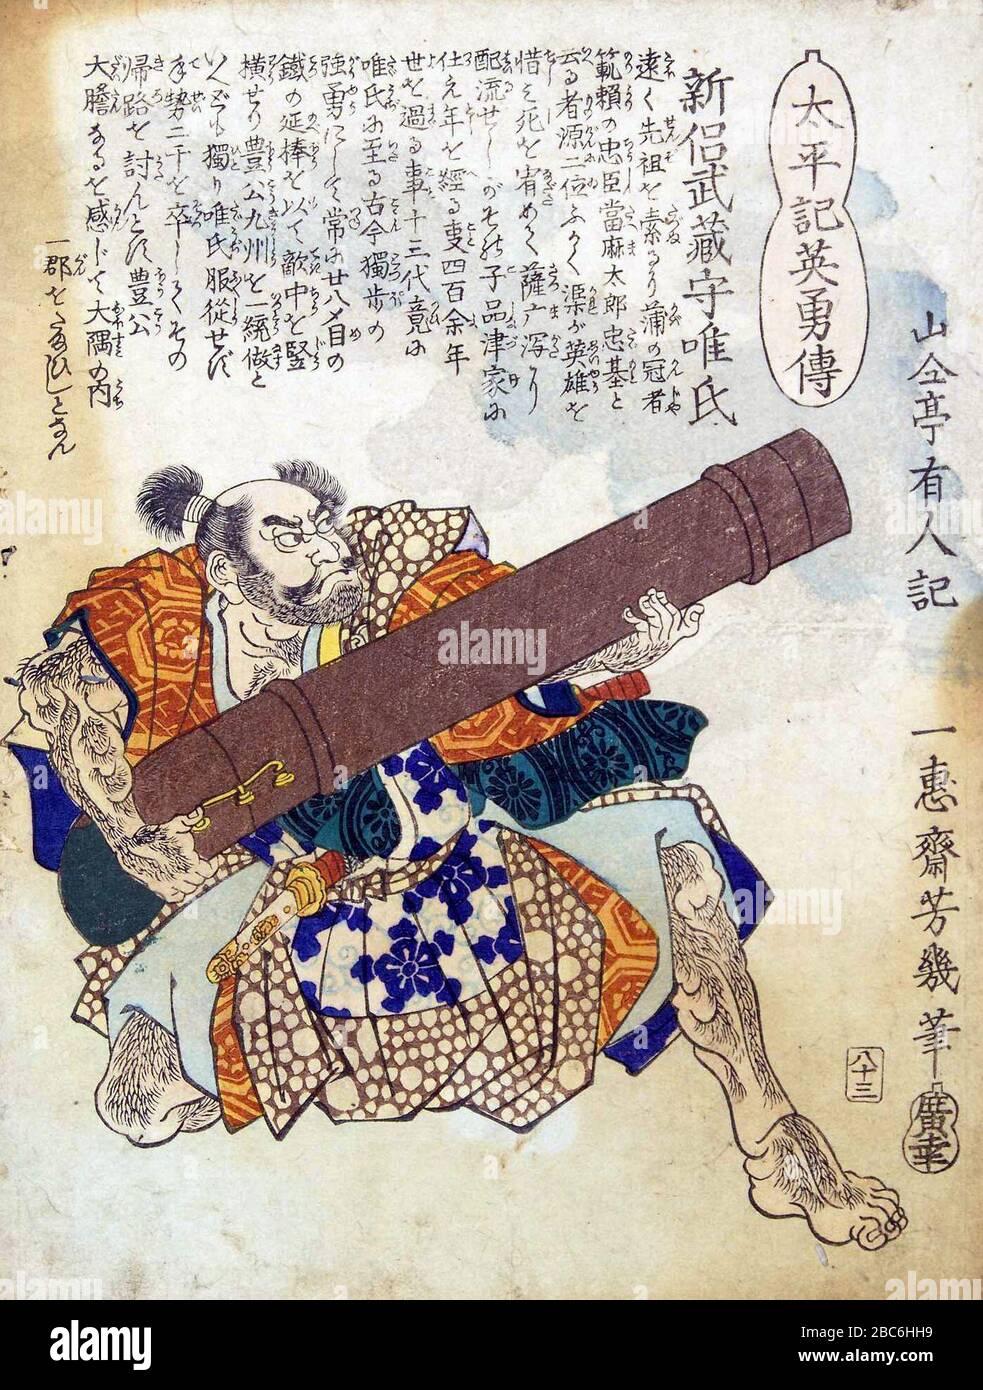 太平記英勇傳
新侶武藏守唯氏
遠く先祖を索るに蒲の冠者
範頼の忠臣當麻太郎忠基と
云る者源二位ふかく渠が英雄を
惜み死を宥めて薩广潟り
配流せしがその子品津家に
仕え年を經る事四百余年
世を過る事十三代竟に
唯氏に至る古今獨歩の
強勇にして常に廿八〆目の
鐵の延棒を以て敵中を竪
横せり豊公九州を一統做と
いへども獨り唯氏服從せず
手勢二千を卒してその
帰路を討んとす豊公
大膽なるを感じて大隅の内
一郡をたまひしとなん
山々亭有人記
一惠齋芳幾筆
八十三
廣幸
alamy
Image ID: 2BC6HH9
www.alamy.com